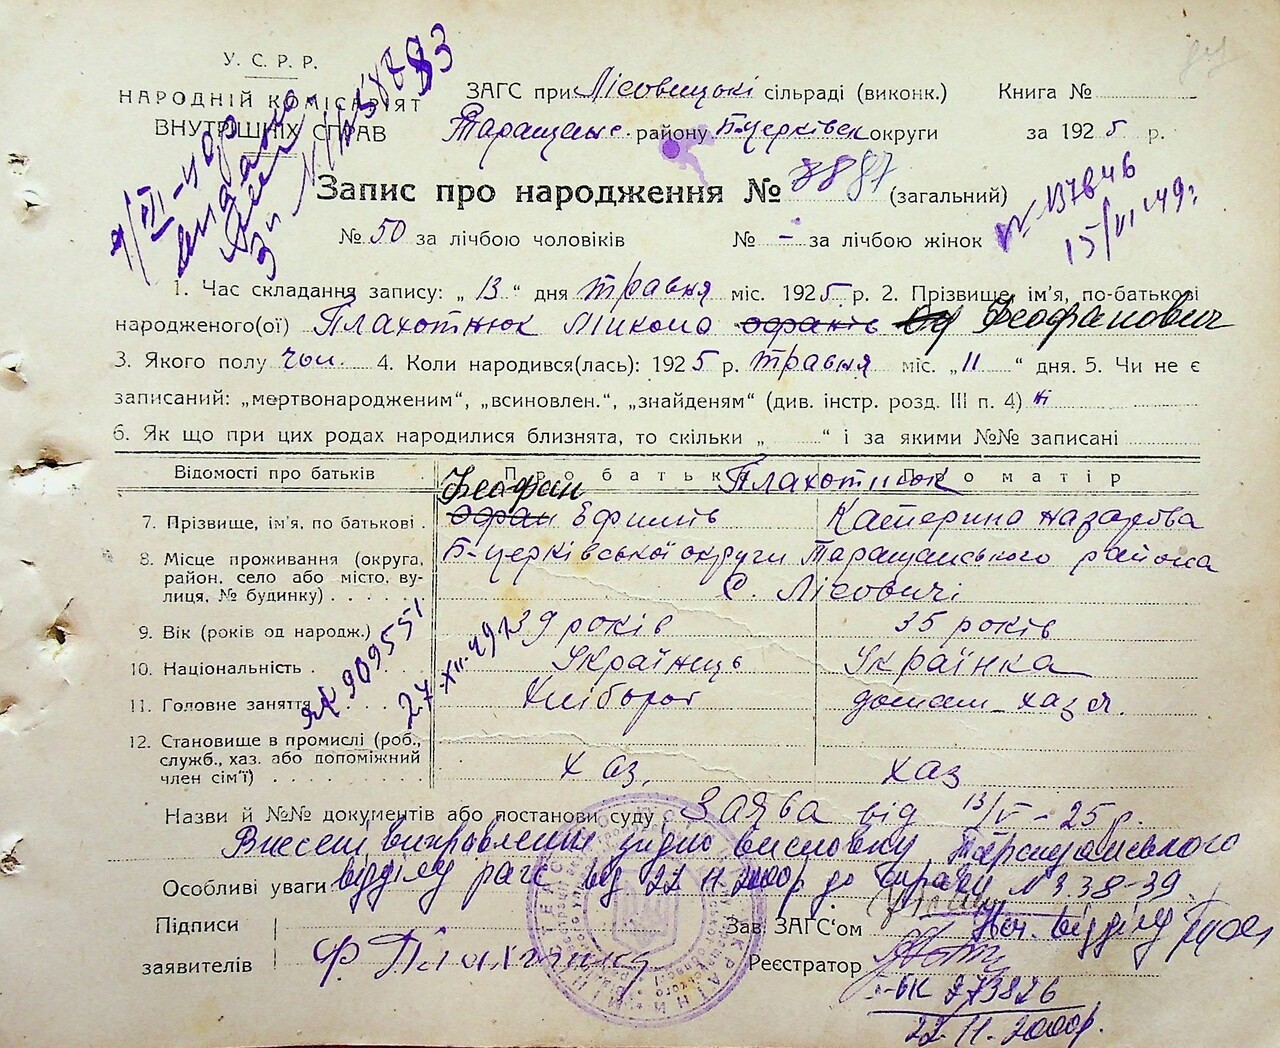 У. С. Р. Р.
НАРОДНІЙ КОМІСАРІЯТ
ВНУТРІШНІХ СПРАВ
ЗАГС при Лісовицькі сільраді (виконк.)
Таращанс. району Б-Церківск округи
Книга №
за 1925 р.
Запис про народження № 7887 (загальний)
№ 50 за лічбою чоловіків
№ - за лічбою жінок
137646
15/VI-49р
1. Час складання запису: „ 13 “ дня травня міс. 1925 р. 2. Прізвище, ім'я, по-батькові
народженого(ої) Плахотнюк Микола Феофанович
3. Якого полу чол. 4. Коли народився(лась): 1925 р. травня міс. „ 11 “ дня. 5. Чи не є
записаний: „мертвонародженим“, „всиновлен.“, „знайденям“ (див. інстр. розд. III п. 4) ні
6. Як що при цих родах народилися близнята, то скільки „ “ і за якими №№ записані
Відомості про батьків
Про батька
Про матір
Плахотнюк
Феофан
7. Прізвище, ім'я, по батькові . Офран Ефимів Катерина Назарова
8. Місце проживання (округа, район, село або місто, вулиця, № будинку) . . . . .
Б-Церківської округи Таращанського района
С. Лісовичі
9. Вік (років од народж.) 39 років 35 років
10. Національність . Українець Українка
11. Головне заняття Хлібороб домаш_хазя.
ЯК 909551
12. Становище в промислі (роб., служб., хаз. або допоміжний член сім'ї) . . . . . хаз. хаз
Назви й №№ документів або постанови суду Заява від 13/V-25р.
Внесені виправлення згідно висновку Таращанського
Особливі уваги відділу рагс від 22 11.2000р до справи № 38-39.
Підписи
заявителів
Ф. Плахотнюк
Зав. ЗАГС'ом Нач. відділу
Реєстратор
І-БК 273826
22.11.2000р.